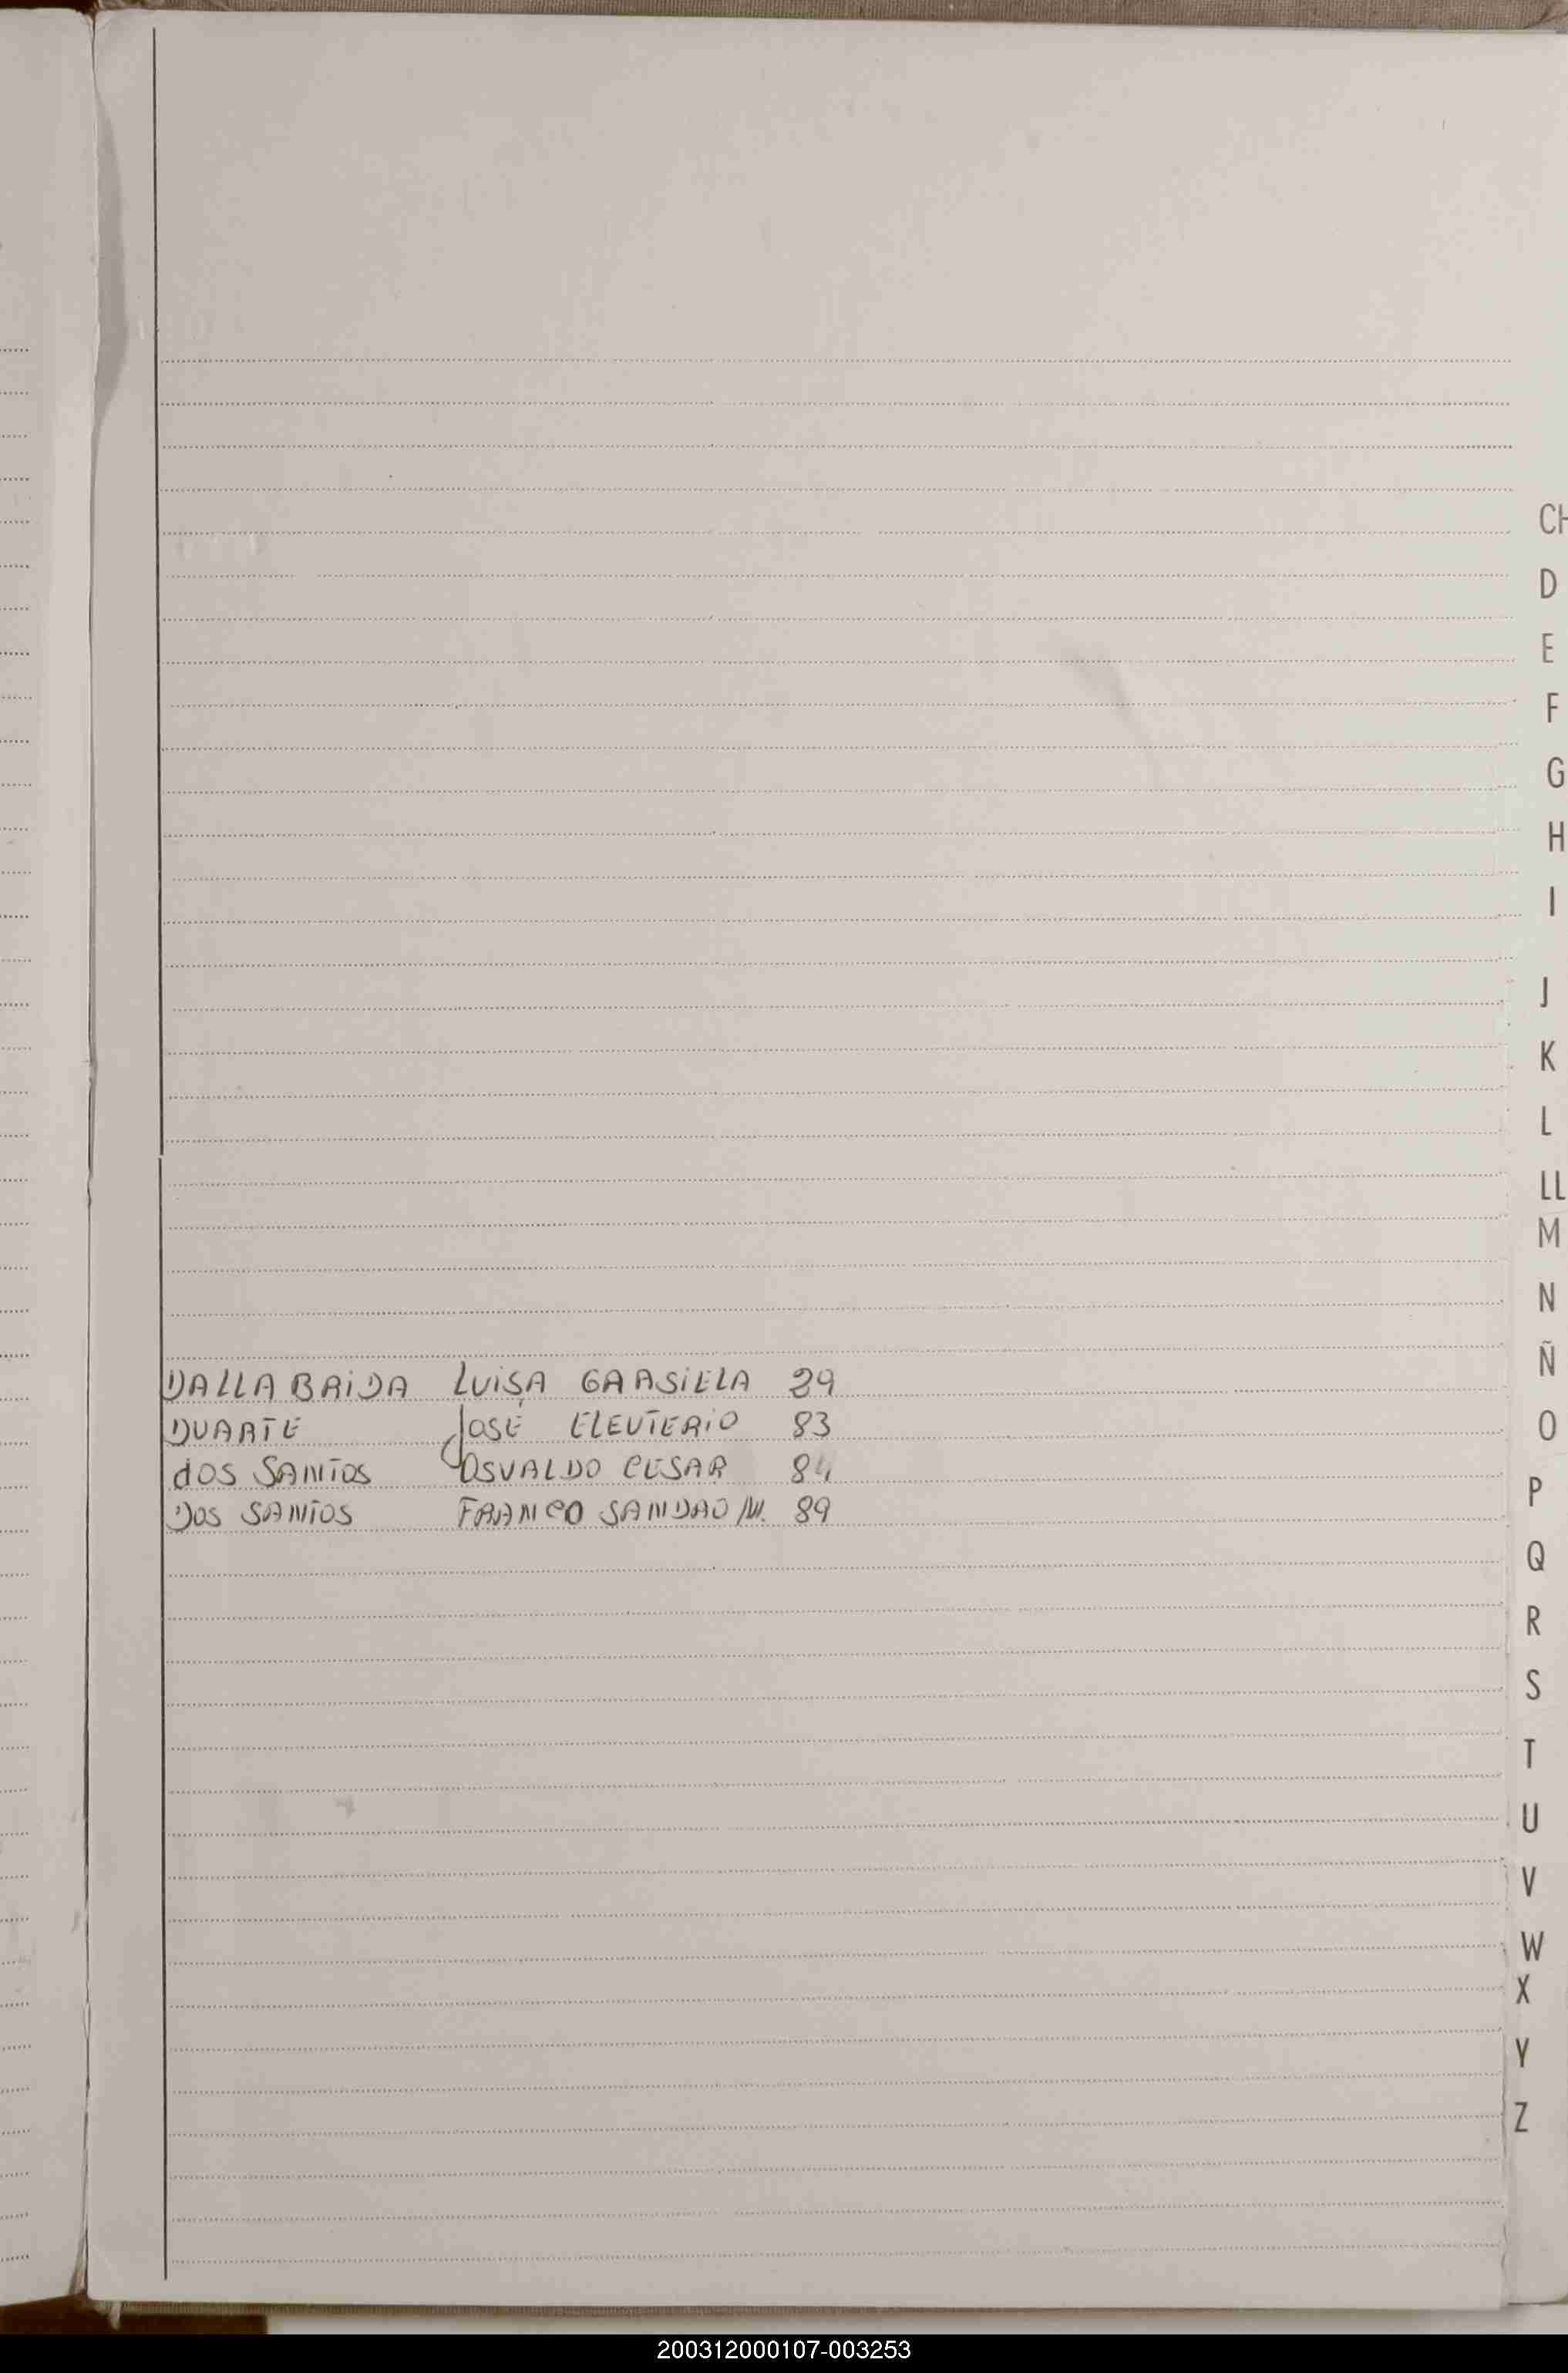 CH
D
E
F
G
H
I
J
K
L
LL
M
N
Ñ
DALLA BRIDA LUISA GRASIELA 29
DUARTE JOSÉ ELEUTERIO 83
O
dOS SANTOS OSVALDO CESAR 84
DOS SANTOS FRANCO SANDRO M. 89
P
Q
R
S
T
U
V
W
X
Y
Z
200312000107-003253